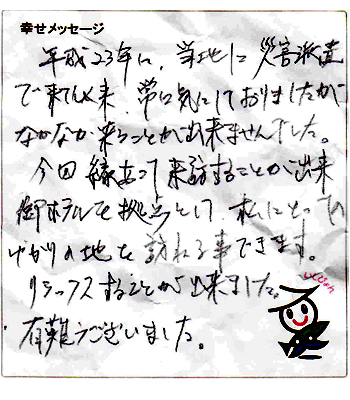 幸せメッセージ
平成23年に、当地に災害派遣
で来て以来、常に気にしておりましたが
なかなか来ることが出来ませんでした。
今回縁あって来訪することが出来
御ホテルを拠点として、私にとってゆ
かりの地を訪れる事できます。
リラックスすることが出来ました。
有難うございました。